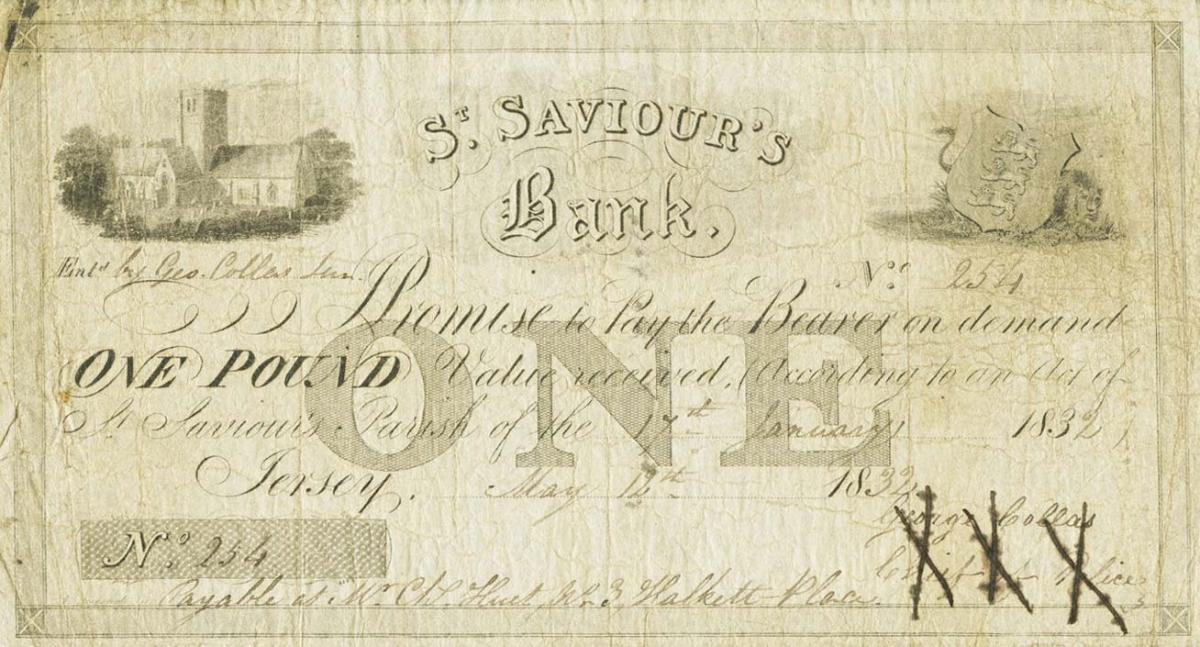 St. SAVIOUR'S
Bank.
Entd by Geo. Collas Jun.
No. 254
Promise to Pay the Bearer on demand
ONE POUND Value received, (According to an Act of
St Saviour's Parish of the 17th January 1832,
ONE
Jersey, May 12th 1832
George Collas
No. 254
Payable at Mr. Chs. Huet, No 3, Halkett Place.